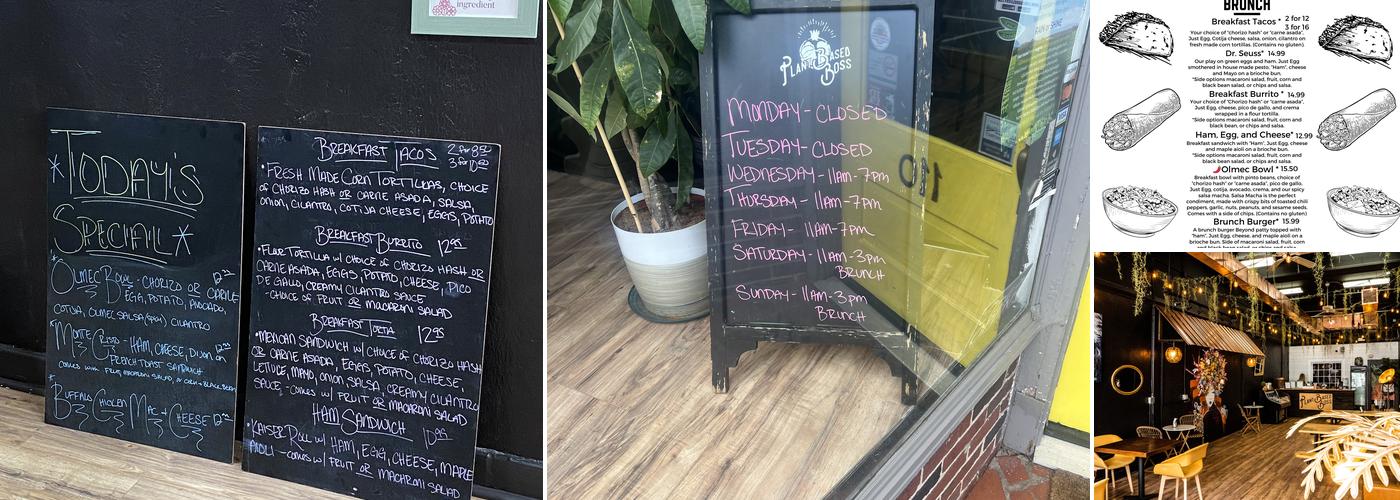 ingredient
*TODAY'S
SPECIAL*
OLMEC BOWL - CHORIZO OR CARNE
EGG, POTATO, AVOCADO,
COTIJA, OLMEC SALSA (SPICY) CILANTRO
MONTE CRISTO - HAM, CHEESE, DIJON ON
FRENCH TOAST SANDWICH
COMES WITH FRUIT, MACARONI SALAD, OR CORN + BLACK BEAN
BUFFALO CHICKEN MAC & CHEESE
BREAKFAST TACOS
•FRESH MADE CORN TORTILLAS, CHOICE
OF CHORIZO HASH OR CARNE ASADA, SALSA,
ONION, CILANTRO, COTIJA CHEESE, EGGS, POTATO
BREAKFAST BURRITO 12.95
•FLOUR TORTILLA W/ CHOICE OF CHORIZO HASH OR
CARNE ASADA, EGGS, POTATO, CHEESE, PICO
DE GALLO, CREAMY CILANTRO SAUCE
- CHOICE OF FRUIT OR MACARONI SALAD
BREAKFAST TORTA 12.95
•MEXICAN SANDWICH W/ CHOICE OF CHORIZO HASH
OR CARNE ASADA, EGGS, POTATO, CHEESE,
LETTUCE, MAYO, ONION, SALSA, CREAMY CILANTRO
SAUCE, - COMES W/ FRUIT OR MACARONI SALAD
HAM SANDWICH
•KAISER ROLL W/ HAM, EGG, CHEESE, MAPLE
AIOLI - COMES W/ FRUIT OR MACARONI SALAD
PLANT BASED
BOSS
MONDAY - CLOSED
TUESDAY - CLOSED
WEDNESDAY - 11am-7pm
THURSDAY - 11am-7pm
FRIDAY - 11am-7pm
SATURDAY - 11am-3pm
BRUNCH
SUNDAY - 11am-3pm
BRUNCH
BRUNCH
Breakfast Tacos * 2 for 12
3 for 16
Your choice of "chorizo hash" or "carne asada",
Just Egg, Cotija cheese, salsa, onion, cilantro on
fresh made corn tortillas. (Contains no gluten).
Dr. Seuss* 14.99
Our play on green eggs and ham. Just Egg
smothered in house made pesto, "Ham", cheese
and Mayo on a brioche bun.
*Side options macaroni salad, fruit, corn and
black bean salad, or chips and salsa.
Breakfast Burrito * 14.99
Your choice of "Chorizo hash" or "carne asada",
Just Egg, cheese, pico de gallo, and crema
wrapped in a flour tortilla.
*Side options macaroni salad, fruit, corn and
black bean salad, or chips and salsa.
Ham, Egg, and Cheese* 12.99
Breakfast sandwich with "Ham", Just Egg, cheese
and maple aioli on a brioche bun.
*Side options macaroni salad, fruit, corn and
black bean salad, or chips and salsa.
Olmec Bowl * 15.50
Breakfast bowl with pinto beans, choice of
"chorizo hash" or "carne asada", pico de gallo,
Just Egg, cotija, avocado, crema, and our spicy
salsa macha. Salsa Macha is the perfect
condiment, made with crispy bits of toasted chili
peppers, garlic, nuts, peanuts, and sesame seeds.
Comes with a side of chips. (Contains no gluten)
Brunch Burger* 15.99
A brunch burger Beyond patty topped with
"ham", Just Egg, cheese, and maple aioli on a
brioche bun. Side of macaroni salad, fruit, corn
PLANT BASED
BOSS